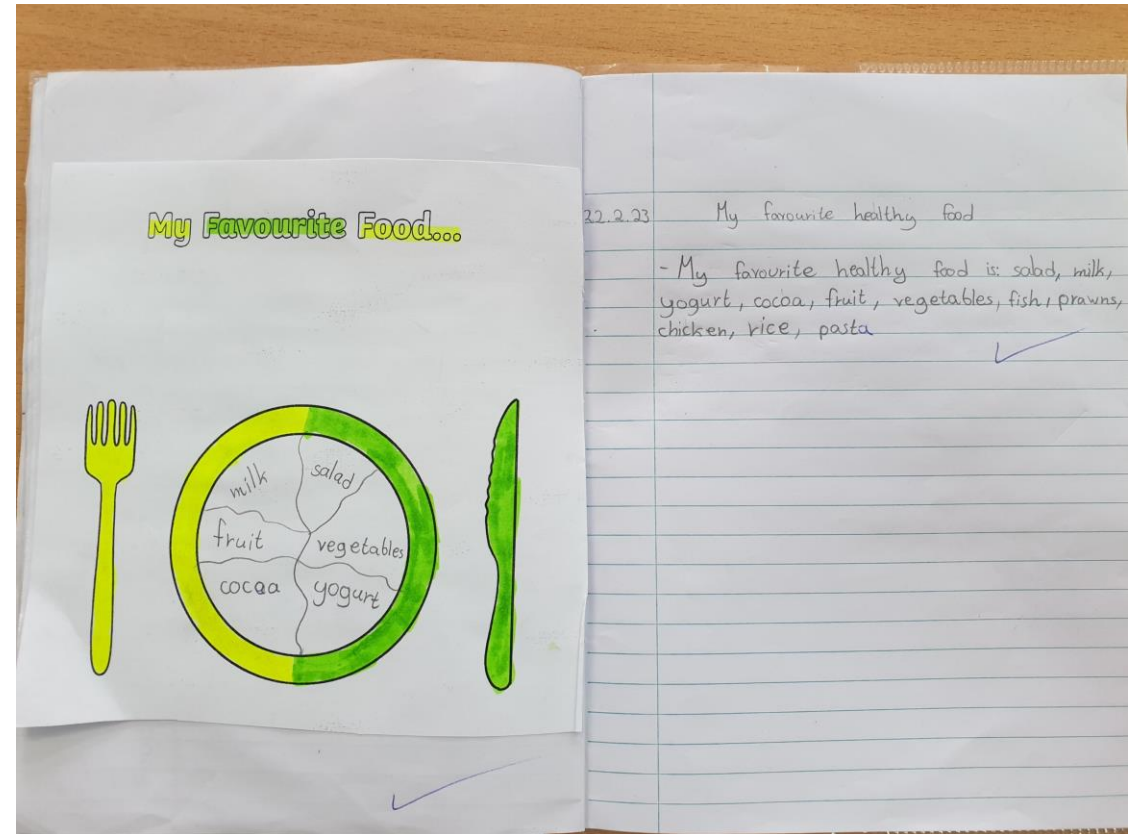 My Favourite Food...
milk
salad
fruit
vegetables
cocoa
yogurt
22.2.23 My favourite healthy food
- My favourite healthy food is: salad, milk,
yogurt, cocoa, fruit, vegetables, fish, prawns,
chicken, rice, pasta